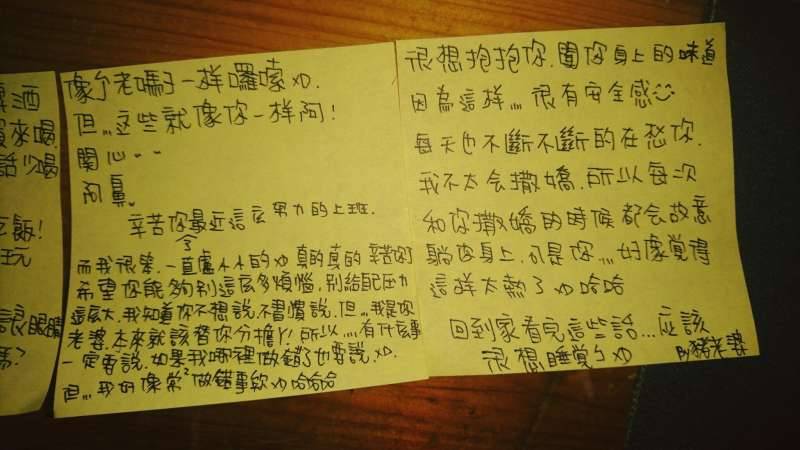 酒
來喝
話少喝
飯!
玩
眼睛
嗎?
像个老嗎子一样囉嗦xD.
但,,,这些就像你一样阿!
関心~~
阿鼻。
辛苦你最近這么努力的上班.
而我很笨.一直盧小小的xD真的真的辛苦你了
希望你能夠别這広多煩惱,别給自己压力
這広大,我知道你不想說,不習慣說,但,,,我是你
老婆,本來就該替你分擔ㄚ!所以,,,,有什広事
一定要說.如果我哪裡做錯了也要說,xD.
但,,,我好像常²做錯事欸xD哈哈哈
很想抱抱你.聞你身上的味道
因為這样,,,,很有安全感☺
每天也不斷不斷的在愁你.
我不太会撒嬌.所以每次
和你撒嬌的時候都会故意
躺你身上.可是你,,,,好像覺得
這样太熱了xD哈哈
回到家看完這些話...应該
很想睡覺ㄅxD
By豬老婆